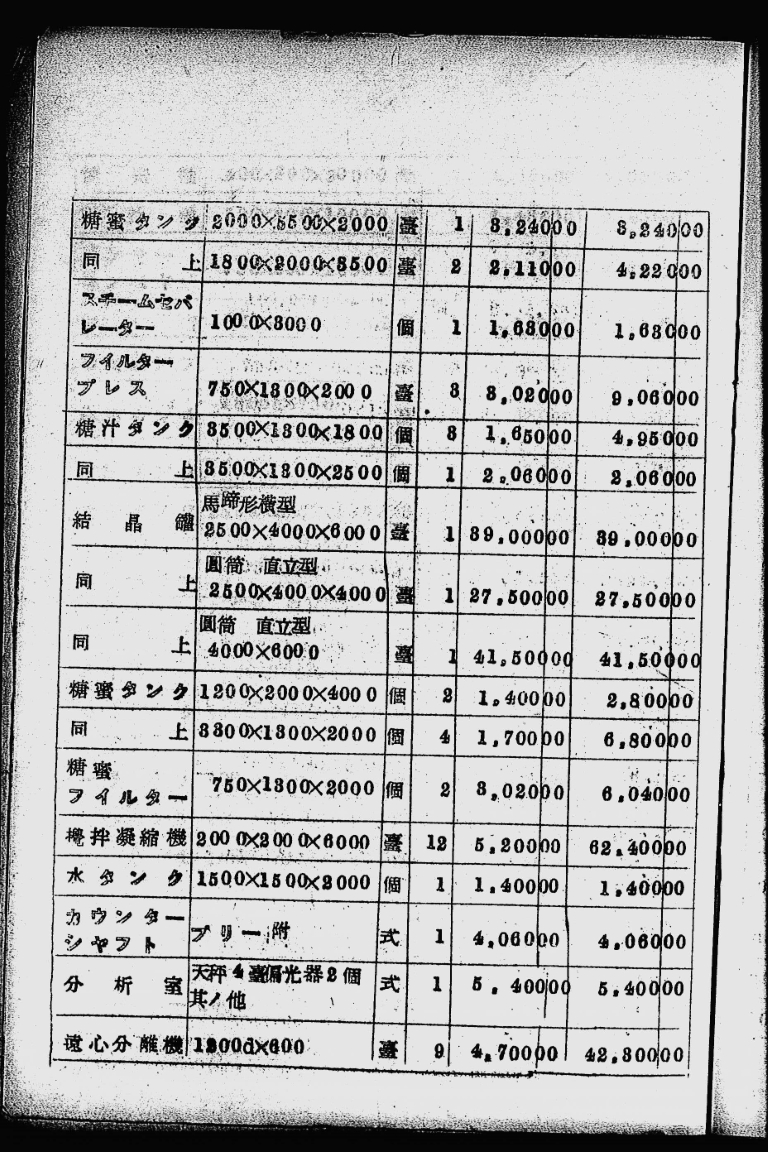 糖蜜タンク 2000×5500×2000 臺 1 3,24000 3,24000
同上 1800×2000×3500 臺 2 2,11000 4,22000
スチームセパ
レーター 1000×3000 個 1 1,63000 1,63000
フイルター
プレス 750×1300×2000 臺 3 3,02000 9,06000
糖汁タンク 3500×1300×1800 個 3 1,65000 4,95000
同上 3500×1300×2500 個 1 2,06000 2,06000
馬蹄形横型
結晶罐 2500×4000×6000 臺 1 39,00000 39,00000
圓筒 直立型
同上 2500×4000×4000 臺 1 27,50000 27,50000
圓筒 直立型
同上 4000×6000 臺 1 41,50000 41,50000
糖蜜タンク 1200×2000×4000 個 2 1,40000 2,80000
同上 3300×1300×2000 個 4 1,70000 6,80000
糖蜜
フイルター 750×1300×2000 個 2 3,02000 6,04000
攪拌凝縮機 2000×2000×6000 臺 12 5,20000 62,40000
水タンク 1500×1500×2000 個 1 1,40000 1,40000
カウンター
シヤフト プリー附 式 1 4,06000 4,06000
分析室 天秤4臺偏光器2個 式 1 5,40000 5,40000
其ノ他
遠心分離機 1200d×600 臺 9 4,70000 42,30000